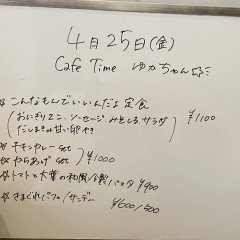 4月25日(金)
Cafe Time ゆかちゃん
☆ こんなもんでいいんだよ定食
(おにぎり2こ、ソーセージ、みそしる、サラダ
だしまきor甘い卵やき) ¥1100
☆ チキンカレー set
☆ からあげ set } ¥1000
☆ トマトと大葉の和風冷製パスタ ¥900
☆ きまぐれパフェ/サンデー ¥600/500